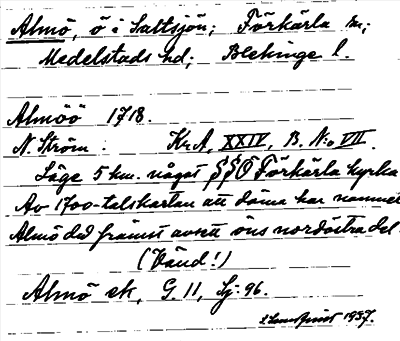 Almö, ö i Saltsjön; Förkärla sn;
Medelstads hd; Blekinge l.
Almöö 1718.
N. Ström : Kr.A, XXIV, B. N:o VII.
Läge 5 km. något SSÖ Förkärla kyrka
Av 1700-talskartan att döma har namnet
Almö då främst avsett öns nordöstra del.
(Vänd!)
Almö ek, G. 11, Sj. 96.
1937.